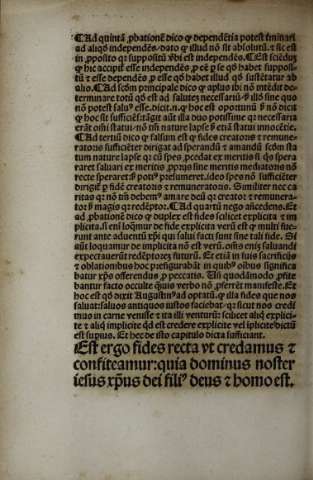 ¶Ad quintã ꝓbationẽ dico ꝙ dependẽtia potest terminari
ad aliqð independẽs / dato ꝙ illud nõ sit absolutũ. ⁊ sic est
in ꝓposito qꝛ suppositũ ꝟbi est independẽs. ¶Est sciẽdũ
ꝙ hic accipit̃ esse independẽs, ꝓ eẽ ꝑ se qð habet suppositũ
⁊ esse dependẽs, ꝓ esse qð habet illud qð sustẽtatur ab
alio. ¶Ad scðm principale dico ꝙ aplus ibi nõ intẽdit determinare
totũ qð est ad salutẽ necessariũ: sʒ illð sine quo
nõ potest salus esse. dicit. n. ꝙ hoc est oportunũ ꝫ nõ dicit
ꝙ hoc sit sufficiẽs. tãgit aũt illa duo potissime qꝛ necessaria
erãt oĩni statui. nõ tm̃ nature lapse sʒ etiã statui innocẽtie.
¶Ad tertiũ dico ꝙ falsum est ꝙ fides creatoris ⁊ remuneratoris
sufficiẽter dirigat ad sperandũ ⁊ amandũ scðm statum
nature lapse qꝛ cũ spes ꝓcedat ex meritis si q̃s speraret
saluari ex meritis ꝓprijs sine meritis mediatoris nõ
recte speraret sʒ poti⁹ presumeret. ideo spes nõ sufficiẽter
dirigit̃ ꝑ fidẽ creatoris ⁊ remuneratoris. Similiter nec caritas
qꝛ nõ tm̃ debem⁹ amare deũ qꝛ creator ⁊ remunerator
sʒ magis qꝛ redẽptor. ¶Ad quartũ nego añcedens. Et
ad ꝓbationẽ dico ꝙ duplex est fides scilicet explicita ⁊ implicita.
si enĩ loq̃mur de fide explicita verũ est ꝙ multi fuerunt
ante aduentũ xp̃i qui salui facti sunt sine tali fide. Si
aũt loquamur de implicita nõ est verũ. oĩm̃s eniʒ saluandi
expectauerũt redẽptorẽ futurũ. Et etiã in suis sacrificijs
⁊ oblationibus hoc prefigurabãt in quib⁹ oĩbus significabatur
xp̃us offerendus ꝓ peccatis. Ipsi quodãmodo ꝓfitebantur
facto occulte quius verbo nõ ꝓferrẽt manifeste. Et
hoc est qð dixit Augustin⁹ ad optatũ ꝙ illa fidea que nos
saluat: saluos antiquos iustos faciebat. qꝛ sicut nos credimus
in carne venisse ⁊ ita illi venturũ: scilicet aliqui explicite
⁊ aliqui implicite qð est credere explicite vel iplicite / dictũ
est supius. Et hec de isto capitulo dicta sufficiant.
Est ergo fides recta vt credamus ⁊
confiteamur: quia dominus noster
iesus xp̃us dei fili⁹ deus ⁊ homo est.